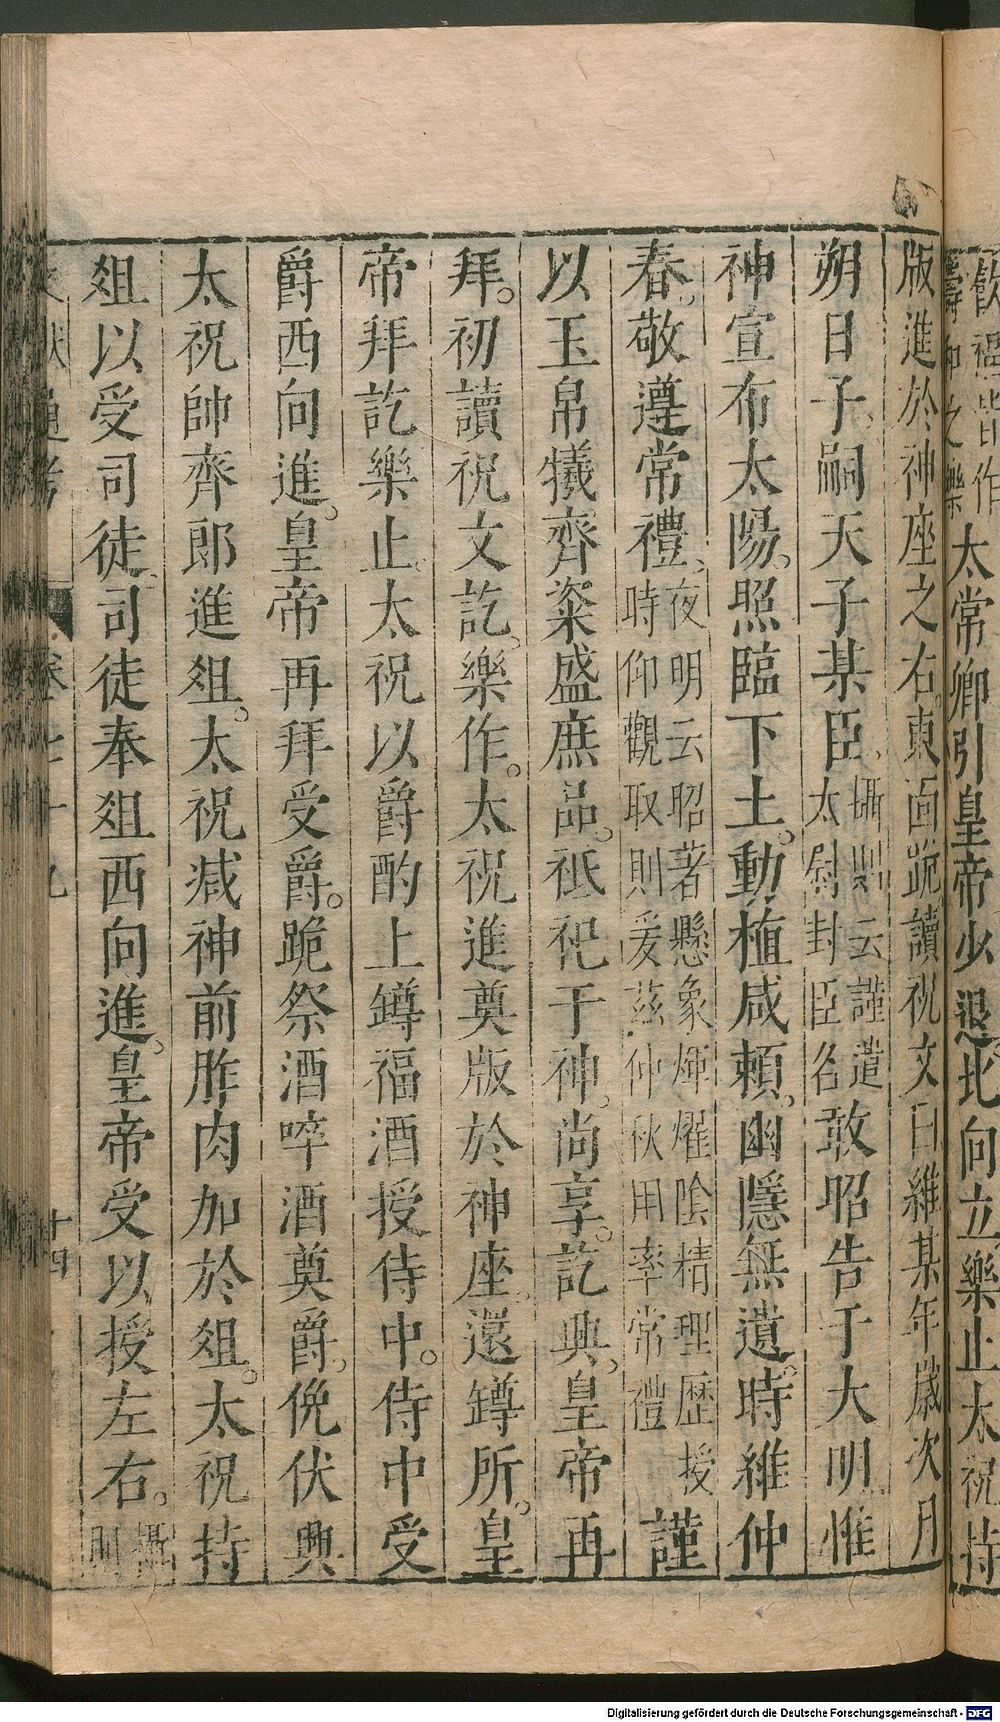 飲福皆作
壽和之樂
太常卿引皇帝少退北向立樂止太祝持
版進於神座之右東面跪讀祝文曰維某年歲次月
朔日子嗣天子某臣
攝則云謹遣
太尉封臣名
敢昭告于大明惟
神宣布太陽。照臨下土。動植咸賴。幽隱無遺。時維仲
春。敬遵常禮、
夜明云昭著懸象煇燿陰精理歷授
時仰觀取則爰茲仲秋用率常禮
謹
以玉帛犧齊粢盛庶品。祗祀于神。尚享。訖興、皇帝再
拜。初讀祝文訖。樂作。太祝進奠版於神座。還罇所。皇
帝拜訖樂止。太祝以爵酌上罇福酒授侍中。侍中受
爵西向進。皇帝再拜受爵。跪祭酒啐酒奠爵。俛伏興
太祝帥齊郎進俎。太祝減神前胙肉加於俎。太祝持
俎以受司徒。司徒奉俎西向進。皇帝受以授左右。
攝
則
文獻通考 卷七十九 十四
Digitalisierung gefördert durch die Deutsche Forschungsgemeinschaft - DFG